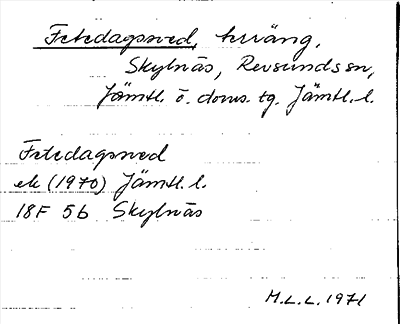 Fetedagsved, hväng,
Skylnäs, Revsunds sn,
Jämtl. ö. doms. tg. Jämtl. l.
Fetedagsved
ek (1970) Jämtl. l.
18F 5b Skylnäs
M.L.L. 1971